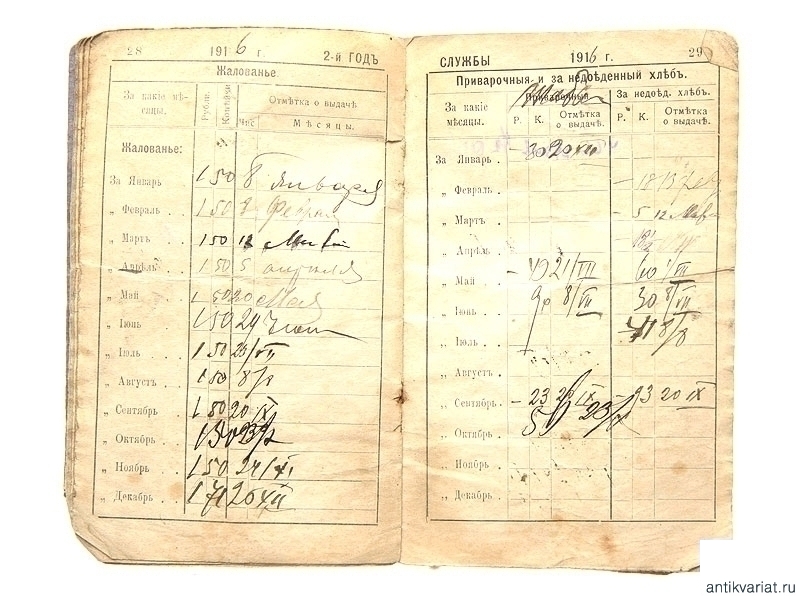 28 1916 г. 2-й ГОДЪ
Жалованье.
За какіе мѣ-
сяцы.
Рубли.
Копѣйки
Отмѣтка о выдачѣ
Чис
Мѣсяцы.
Жалованье:
За Январь 1 50 8 января
„ Февраль . . 1 50
„ Мартъ . . 1 50 12
„ Апрѣль . 1 50 5 апреля
„ Май . . 1 50 20 Мая
„ Іюнь . . 1 50 24
„ Іюль . . 1 50 23/VII
„ Августъ . . 1 50
„ Сентябрь . 1 50 20 IX
„ Октябрь . .
„ Ноябрь . . 1 50 24/XI
„ Декабрь . . 1 71 20 XII
СЛУЖБЫ 1916 г. 29
Приварочныя и за недоѣденный хлѣбъ.
За какіе
мѣсяцы.
Приварочныя
За недоѣд. хлѣбъ.
Р. К. Отмѣтка
о выдачѣ.
Р. К. Отмѣтка
о выдачѣ.
За Январь . 30 20 XII
„ Февраль .
„ Мартъ . . – 5 12
„ Апрѣль .
„ Май . . 21/VII 60
„ Іюнь . 90 8/VII 30 8/VII
„ Іюль . .
„ Августъ .
„ Сентябрь . – 23 20 IX – 93 20 IX
„ Октябрь .
„ Ноябрь . .
„ Декабрь .
antikvariat.ru